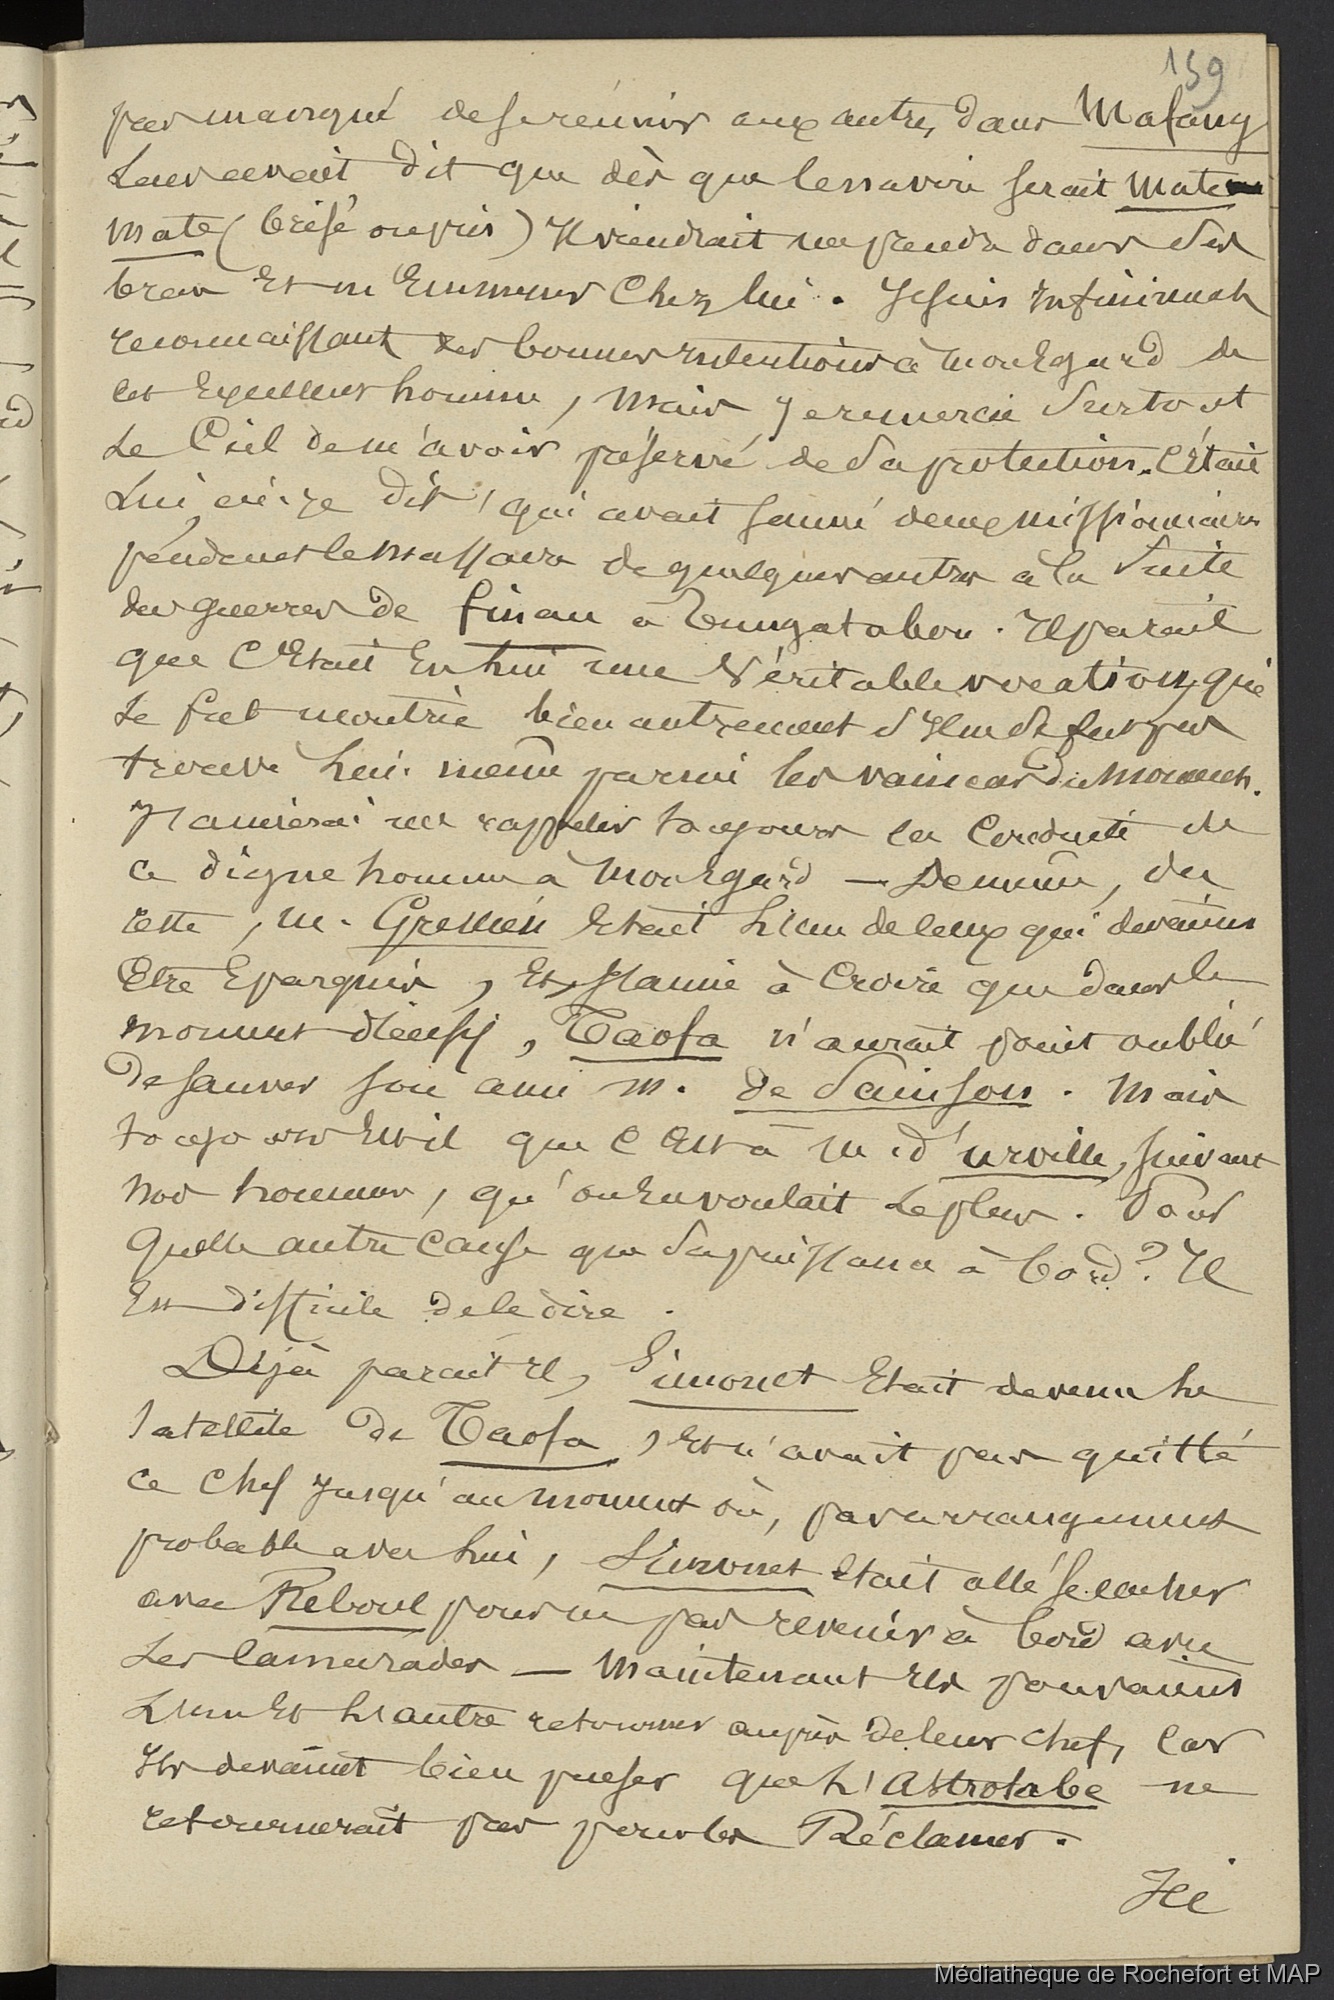 159
pas manqué de se réunir aux autres dans Mafang
Laur avait dit que dès que le navire serait mate
mate (brisé ou pris) Il viendrait me prendre dans Ses
bras Et m'Emmener Chez lui. Je suis Infiniment
reconnaissant des bonnes intentions à mon Egard de
cet Excellent homme, Mais Je remercie Surtout
Le Ciel de m'avoir préservé de Sa protection. C'était
Lui, ai-je dit, qui avait sauvé deux Missionnaires
pendant le Massacre de quelques autres à la Suite
des guerres de finau à Tungatabou. Il parait
que C'Etait En lui une Véritable vocation, qui
Se fut montrée bien autrement S'Il ne Se fut pas
trouvé Lui-même parmi les vaincus du Moment.
J'aimerai me rappeler toujours la Conduite de
ce digne homme à Mon Egard — De même, du
reste, M. Gressien Etait L'un de Ceux qui devaient
Etre Epargnés, Et J'aime à Croire que dans le
moment décisif, Taofa n'aurait point oublié
De sauver son ami M. de Sainson. Mais
toujours Est-il que C'Est à M. d'urville, suivant
nos hommes, qu'on En voulait Le plus. Pour
Quelle autre Cause que Sa puissance à bord? Il
Est difficile de le dire.
Déjà parait Il, Simonet Etait devenu Le
Satellite de Taofa, Et n'avait pas quitté
ce Chef Jusqu'au moment où, par arrangement
probable avec Lui, Simonet Etait allé se cacher
avec Reboul pour ne pas revenir à bord avec
Les Camarades — Maintenant Ils pouvaient
L'un Et L'autre retourner auprès de leur chef, Car
Ils devaient bien penser que L'Astrolabe ne
retournerait pas pour les Réclamer.
Ici
Médiathèque de Rochefort et MAP